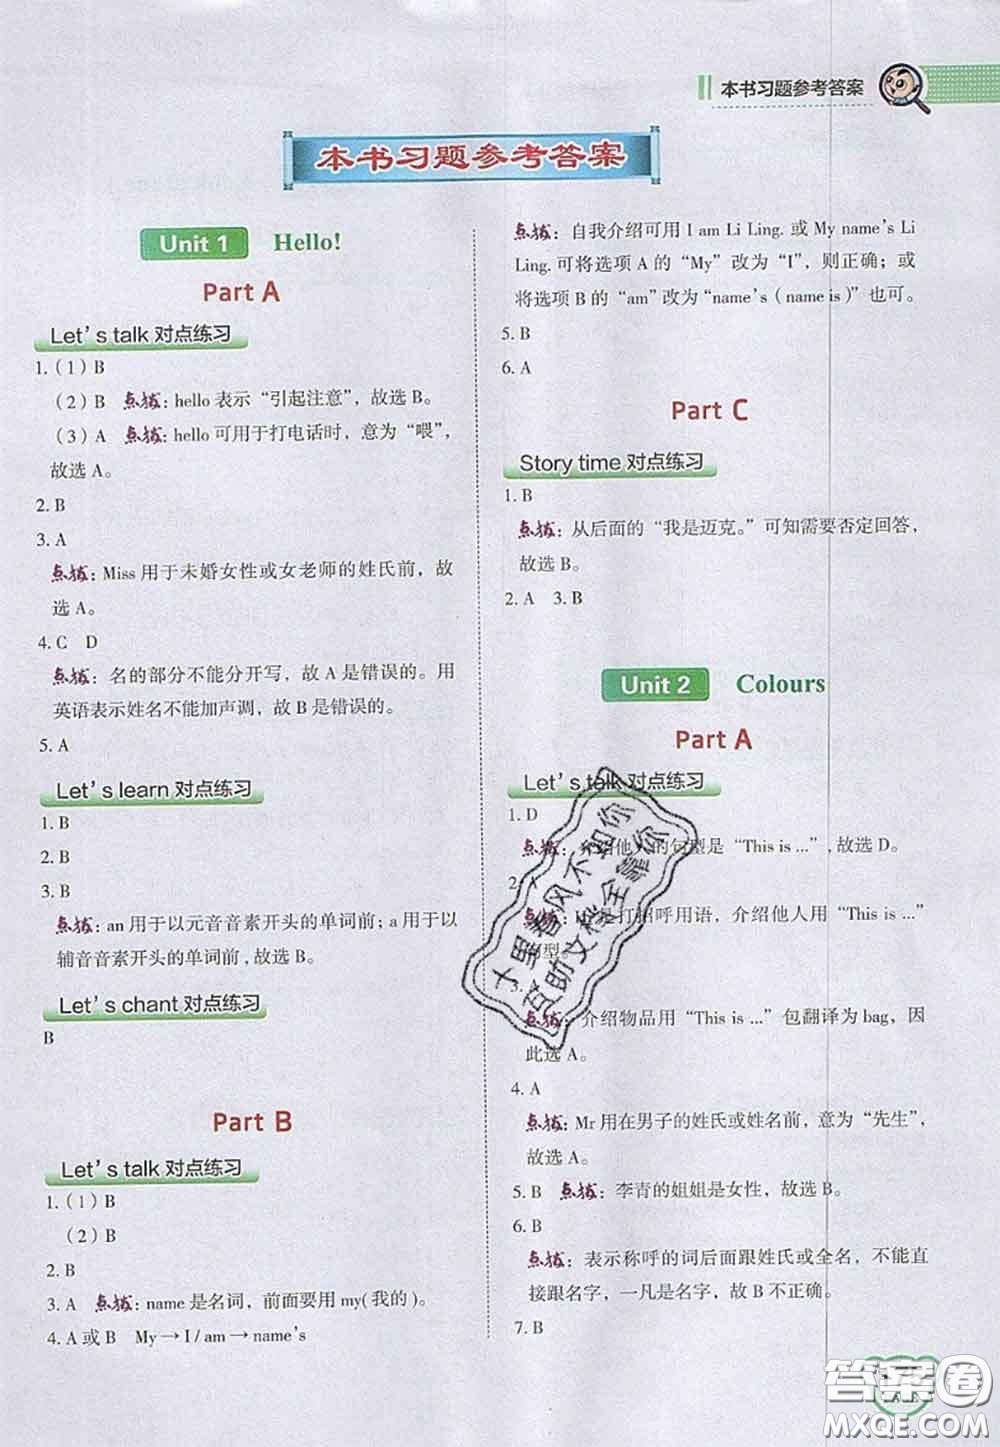 本书习题参考答案
本书习题参考答案
Unit 1 Hello!
Part A
Let's talk 对点练习
1.（1）B
（2）B 点拨：hello 表示“引起注意”，故选 B。
（3）A 点拨：hello 可用于打电话时，意为“喂”，
故选 A。
2. B
3. A
点拨：Miss 用于未婚女性或女老师的姓氏前，故
选 A。
4. C D
点拨：名的部分不能分开写，故 A 是错误的。用
英语表示姓名不能加声调，故 B 是错误的。
5. A
Let's learn 对点练习
1. B
2. B
3. B
点拨：an 用于以元音音素开头的单词前；a 用于以
辅音音素开头的单词前，故选 B。
Let's chant 对点练习
B
Part B
Let's talk 对点练习
1.（1）B
（2）B
2. B
3. A 点拨：name 是名词，前面要用 my(我的)。
4. A 或 B My→I / am→name's
点拨：自我介绍可用 I am Li Ling. 或 My name's Li
Ling. 可将选项 A 的“My”改为“I”，则正确；或
将选项 B 的“am”改为“name's（name is）”也可。
5. B
6. A
Part C
Story time 对点练习
1. B
点拨：从后面的“我是迈克。”可知需要否定回答，
故选 B。
2. A 3. B
Unit 2 Colours
Part A
Let's talk 对点练习
1. D
点拨：介绍他人的句型是“This is ...”，故选 D。
2. A
点拨：是打招呼用语，介绍他人用“This is ...”
句型。
3.
点拨：介绍物品用“This is ...”包翻译为 bag，因
此选 A。
4. A
点拨：Mr 用在男子的姓氏或姓名前，意为“先生”，
故选 A。
5. B 点拨：李青的姐姐是女性，故选 B。
6. B
点拨：表示称呼的词后面跟姓氏或全名，不能直
接跟名字，一凡是名字，故 B 不正确。
7. B
十里春风不如你
互助文档全靠你
答案卷
MXQE.COM